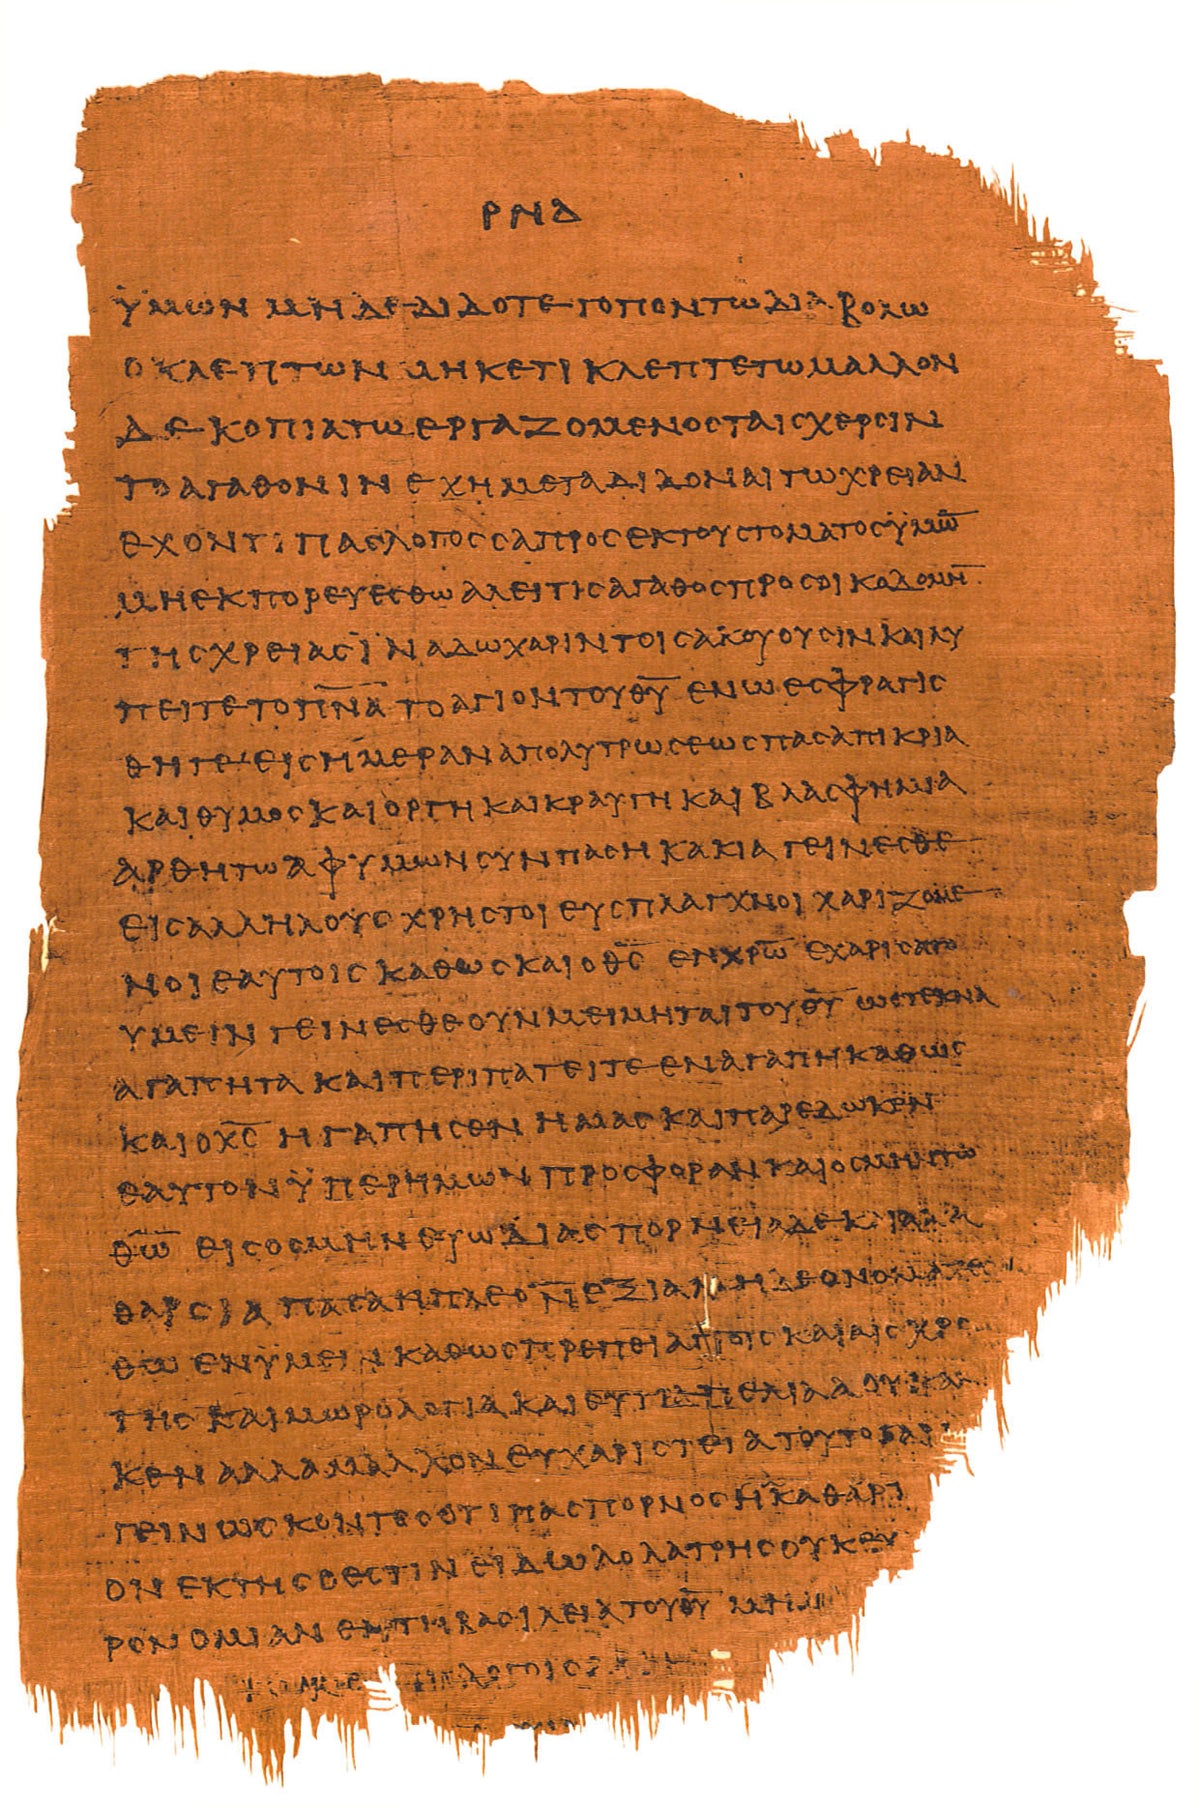 ΡΝΔ
ΫΜΩΝ ΜΗΔΕ ΔΙΔΟΤΕ ΤΟΠΟΝ ΤΩ ΔΙΑΒΟΛΩ
Ο ΚΛΕΠΤΩΝ ΜΗΚΕΤΙ ΚΛΕΠΤΕΤΩ ΜΑΛΛΟΝ
ΔΕ ΚΟΠΙΑΤΩ ΕΡΓΑΖΟΜΕΝΟΣ ΤΑΙΣ ΧΕΡΣΙΝ
ΤΟ ΑΓΑΘΟΝ ΙΝ ΕΧΗ ΜΕΤΑΔΙΔΟΝΑΙ ΤΩ ΧΡΕΙΑΝ
ΕΧΟΝΤΙ ΠΑΣ ΛΟΓΟΣ ΣΑΠΡΟΣ ΕΚ ΤΟΥ ΣΤΟΜΑΤΟΣ ΫΜΩ̅
ΜΗ ΕΚΠΟΡΕΥΕΣΘΩ ΑΛ ΕΙ ΤΙΣ ΑΓΑΘΟΣ ΠΡΟΣ ΟΙΚΟΔΟΜΗ̅
ΤΗΣ ΧΡΕΙΑΣ ΪΝΑ ΔΩ ΧΑΡΙΝ ΤΟΙΣ ΑΚΟΥΟΥΣΙΝ ΚΑΙ ΛΥ
ΠΕΙΤΕ ΤΟ Π̅Ν̅Α̅ ΤΟ ΑΓΙΟΝ ΤΟΥ Θ̅Υ̅ ΕΝ Ω ΕΣΦΡΑΓΙΣ
ΘΗΤΕ ΕΙΣ ΗΜΕΡΑΝ ΑΠΟΛΥΤΡΩΣΕΩΣ ΠΑΣΑ ΠΙΚΡΙΑ
ΚΑΙ ΘΥΜΟΣ ΚΑΙ ΟΡΓΗ ΚΑΙ ΚΡΑΥΓΗ ΚΑΙ ΒΛΑΣΦΗΜΙΑ
ΑΡΘΗΤΩ ΑΦ ΥΜΩΝ ΣΥΝ ΠΑΣΗ ΚΑΚΙΑ ΓΕΙΝΕΣΘΕ
ΕΙΣ ΑΛΛΗΛΟΥΣ ΧΡΗΣΤΟΙ ΕΥΣΠΛΑΓΧΝΟΙ ΧΑΡΙΖΟΜΕ
ΝΟΙ ΕΑΥΤΟΙΣ ΚΑΘΩΣ ΚΑΙ Ο Θ̅Σ̅ ΕΝ Χ̅Ρ̅Ω̅ ΕΧΑΡΙΣΑΤΟ
ΥΜΕΙΝ ΓΕΙΝΕΣΘΕ ΟΥΝ ΜΕΙΜΗΤΑΙ ΤΟΥ Θ̅Υ̅ ΩΣ ΤΕΚΝΑ
ΑΓΑΠΗΤΑ ΚΑΙ ΠΕΡΙΠΑΤΕΙΤΕ ΕΝ ΑΓΑΠΗ ΚΑΘΩΣ
ΚΑΙ Ο Χ̅Σ̅ ΗΓΑΠΗΣΕΝ ΗΜΑΣ ΚΑΙ ΠΑΡΕΔΩΚΕΝ
ΕΑΥΤΟΝ ΫΠΕΡ ΗΜΩΝ ΠΡΟΣΦΟΡΑΝ ΚΑΙ ΟΣΜΗΝ ΤΩ
Θ̅Ω̅ ΕΙΣ ΟΣΜΗΝ ΕΥΩΔΙΑΣ ΠΟΡΝΕΙΑ ΔΕ ΚΑΙ ΑΚΑ
ΘΑΡΣΙΑ ΠΑΣΑ Η ΠΛΕΟΝΕΞΙΑ ΜΗΔΕ ΟΝΟΜΑΖΕΣ
ΘΩ ΕΝ ΫΜΕΙΝ ΚΑΘΩΣ ΠΡΕΠΕΙ ΑΓΙΟΙΣ ΚΑΙ ΑΙΣΧΡΟ
ΤΗΣ ΚΑΙ ΜΩΡΟΛΟΓΙΑ ΚΑΙ ΕΥΤΡΑΠΕΛΙΑ Α ΟΥΚ ΑΝΗ
ΚΕΝ ΑΛΛΑ ΜΑΛΛΟΝ ΕΥΧΑΡΙΣΤΕΙΑ ΤΟΥΤΟ ΓΑΡ Ι
ΓΕΙΝΩΣΚΟΝΤΕΣ ΟΤΙ ΠΑΣ ΠΟΡΝΟΣ Η ΑΚΑΘΑΡΤ
ΟΝ ΕΚΤΗΣ Ο ΕΣΤΙΝ ΕΙΔΩΛΟΛΑΤΡΗΣ ΟΥΚ ΕΧ
ΡΟΝΟΜΙΑΝ ΕΝ ΤΗ ΒΑΣΙΛΕΙΑ ΤΟΥ Θ̅Υ̅ ΜΗ
ΛΟΓΟΙΣ